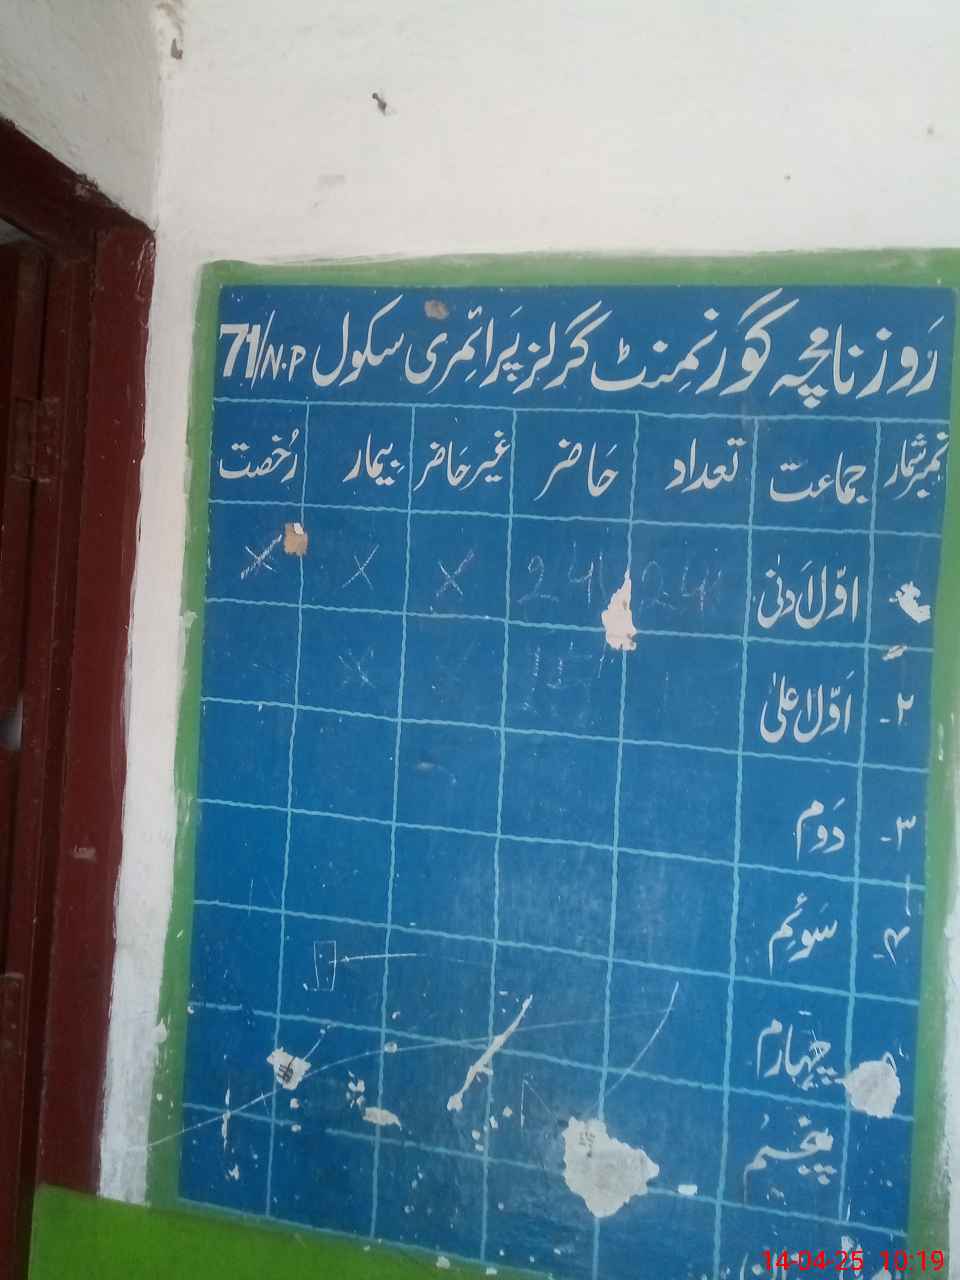 روزنامچہ گورنمنٹ گرلز پرائمری سکول 71/N.P
نمبر شمار جماعت تعداد حاضر غیر حاضر بیمار رخصت
اوّل ادنیٰ 24 24 × × ×
۲- اوّل اعلیٰ ×
۳- دوم
۴- سوئم
چہارم
پنجم
14-04-25 10:19